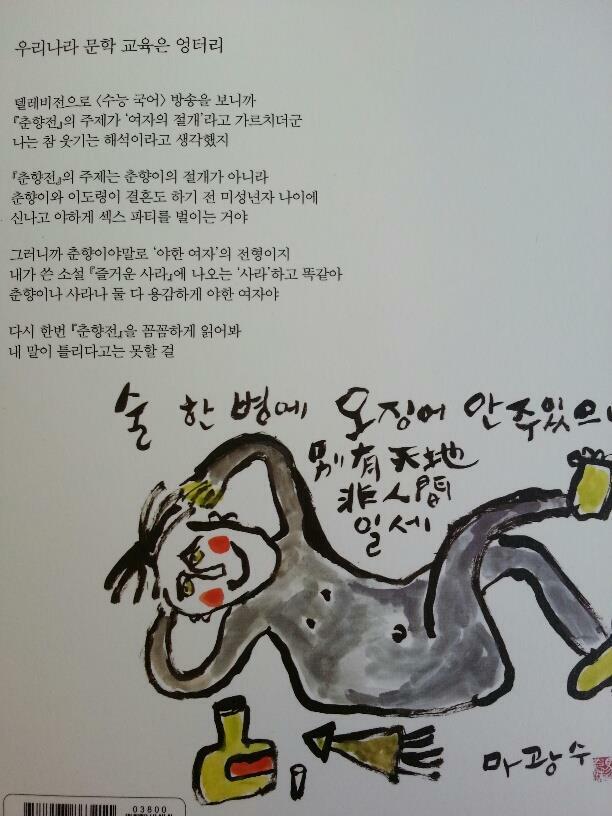 우리나라 문학 교육은 엉터리
텔레비전으로 〈수능 국어〉 방송을 보니까
『춘향전』의 주제가 ‘여자의 절개’라고 가르치더군
나는 참 웃기는 해석이라고 생각했지
『춘향전』의 주제는 춘향이의 절개가 아니라
춘향이와 이도령이 결혼도 하기 전 미성년자 나이에
신나고 야하게 섹스 파티를 벌이는 거야
그러니까 춘향이야말로 ‘야한 여자’의 전형이지
내가 쓴 소설 『즐거운 사라』에 나오는 ‘사라’하고 똑같아
춘향이나 사라나 둘 다 용감하게 야한 여자야
다시 한번 『춘향전』을 꼼꼼하게 읽어봐
내 말이 틀리다고는 못할 걸
술 한 병에 오징어 안주있으니
別有天地
非人間
일세
마광수
03800